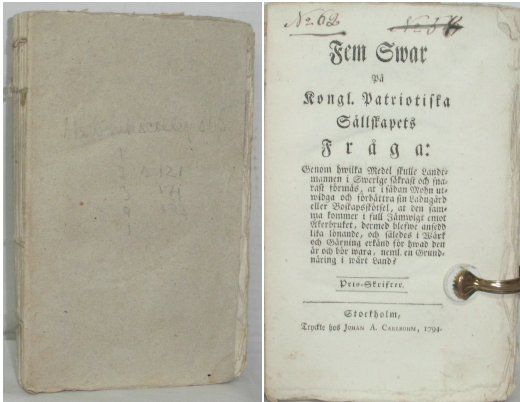 No 62
Fem Swar
På
Kongl. Patriotiska
Sällskapets
Fråga:
Genom hwilka Medel skulle Landt-
mannen i Swerige säkrast och sna-
rast förmås, at i sådan Mohn ut-
widga och förbättra sin Ladugård
eller Boskapsskötsel, at den sam-
ma kommer i full Jämwigt emot
Åkerbruket, dermed blefwe ansedd
lika lönande, och således i Wärk
och Gärning erkänd för hwad den
är och bör wara, neml. en Grund-
näring i wårt Land?
Pris-Skrifter.
Stockholm,
Tryckte hos JOHAN A. CARLBOHM, 1794.